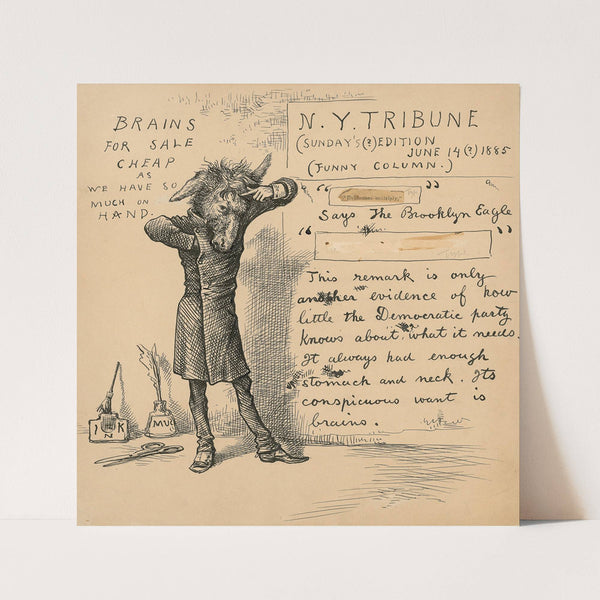 BRAINS
FOR SALE
CHEAP
AS
WE HAVE SO
MUCH ON
HAND.
N. Y. TRIBUNE
(SUNDAY'S(?) EDITION
JUNE 14(?) 1885
(FUNNY COLUMN.)
" "
Says The Brooklyn Eagle
" "
This remark is only
another evidence of how
little the Democratic party
knows about what it needs.
It always had enough
stomach and neck. Its
conspicuous want is
brains.
INK
MUC